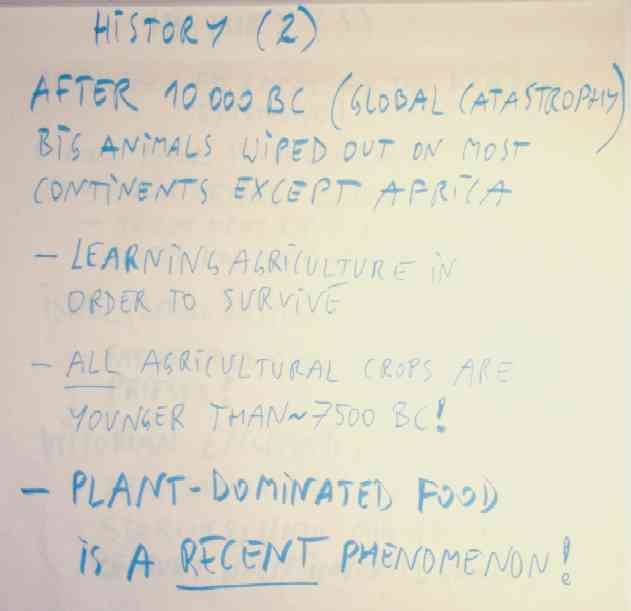 HISTORY (2)
AFTER 10 000 BC (GLOBAL CATASTROPHY)
BIG ANIMALS WIPED OUT ON MOST
CONTINENTS EXCEPT AFRICA
- LEARNING AGRICULTURE IN
ORDER TO SURVIVE
- ALL AGRICULTURAL CROPS ARE
YOUNGER THAN ~7500 BC!
- PLANT-DOMINATED FOOD
IS A RECENT PHENOMENON!